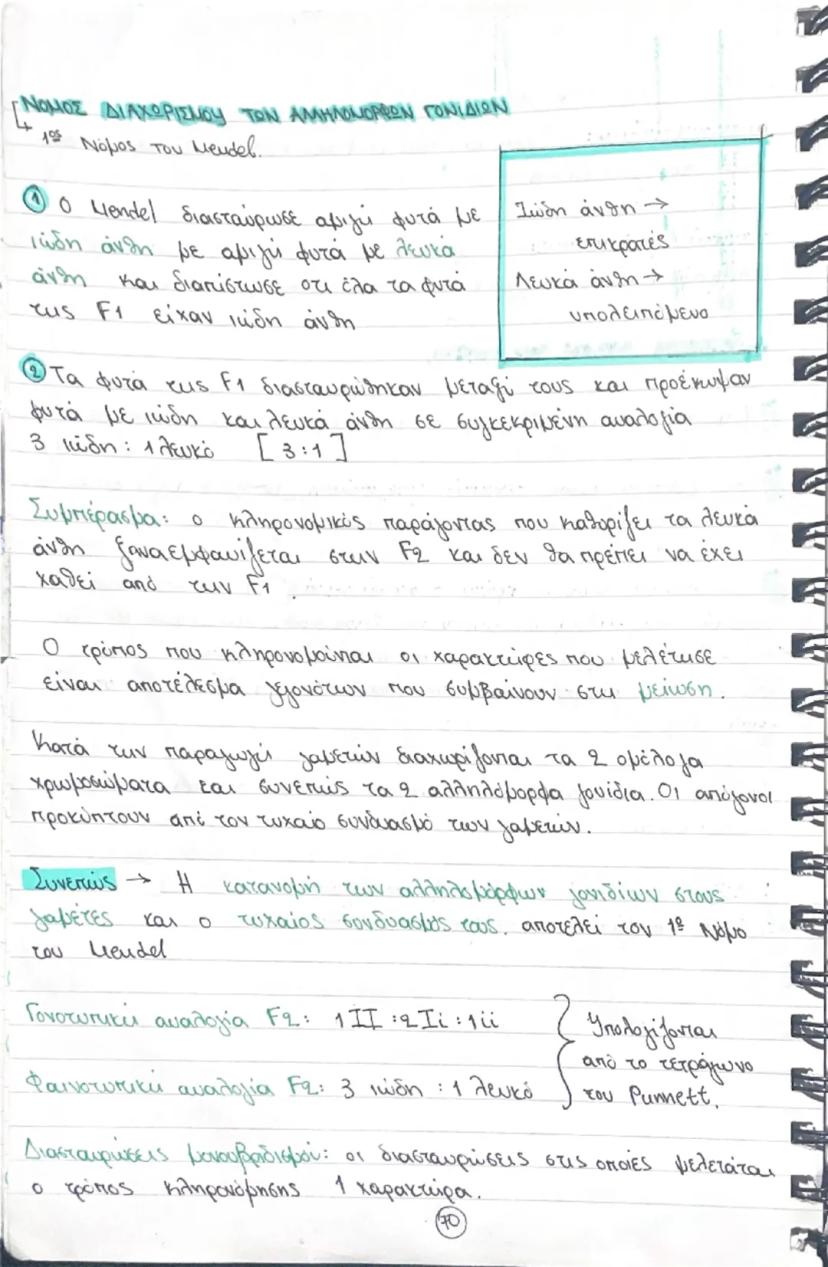 ΝΟΜΟΣ ΔΙΑΧΩΡΙΣΜΟΥ ΤΩΝ ΑΛΛΗΛΟΜΟΡΦΩΝ ΓΟΝΙΔΙΩΝ
↳ 1ος Νόμος του Mendel.
① Ο Mendel διασταύρωσε αμιγή φυτά με
ιώδη άνθη με αμιγή φυτά με λευκά
άνθη και διαπίστωσε οτι όλα τα φυτά
της F1 είχαν ιώδη άνθη
Ιώδη άνθη →
επικρατές
Λευκά άνθη →
υπολειπόμενο
② Τα φυτά της F1 διασταυρώθηκαν μεταξύ τους και προέκυψαν
φυτά με ιώδη και λευκά άνθη σε συγκεκριμένη αναλογία
3 ιώδη : 1 λευκό [3:1]
Συμπέρασμα: ο κληρονομικός παράγοντας που καθορίζει τα λευκά
άνθη ξαναεμφανίζεται στην F2 και δεν θα πρέπει να έχει
χαθεί από την F1.
Ο τρόπος που κληρονομούνται οι χαρακτήρες που μελέτησε
είναι αποτέλεσμα γεγονότων που συμβαίνουν στη μείωση.
Κατά την παραγωγή γαμετών διαχωρίζονται τα 2 ομόλογα
χρωμοσώματα και συνεπώς τα 2 αλληλόμορφα γονίδια. Οι απόγονοι
προκύπτουν από τον τυχαίο συνδυασμό των γαμετών.
Συνεπώς → Η κατανομή των αλληλομόρφων γονιδίων στους
γαμέτες και ο τυχαίος συνδυασμός τους, αποτελεί τον 1ο Νόμο
του Mendel
Γονοτυπική αναλογία F2: 1II :2Ii :1ii
Φαινοτυπική αναλογία F2: 3 ιώδη : 1 λευκό
Υπολογίζονται
από το τετράγωνο
του Punnett.
Διασταυρώσεις μονουβριδισμού: οι διασταυρώσεις στις οποίες μελετάται
ο τρόπος κληρονόμησης 1 χαρακτήρα.
70